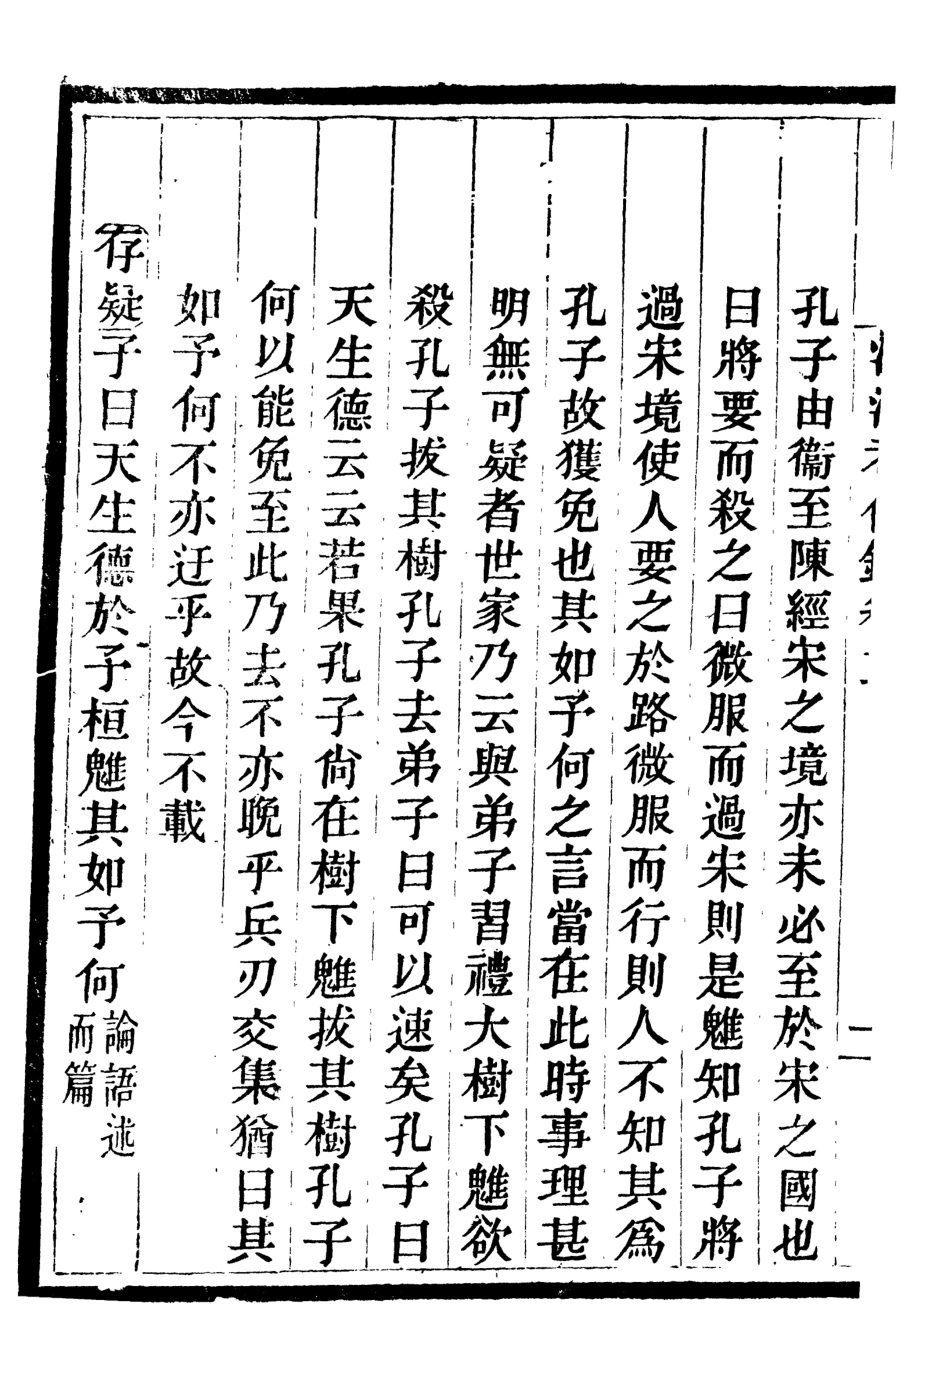 孔子由衞至陳經宋之境亦未必至於宋之國也
曰將要而殺之曰微服而過宋則是魋知孔子將
過宋境使人要之於路微服而行則人不知其爲
孔子故獲免也其如予何之言當在此時事理甚
明無可疑者世家乃云與弟子習禮大樹下魋欲
殺孔子拔其樹孔子去弟子曰可以速矣孔子曰
天生德云云若果孔子尙在樹下魋拔其樹孔子
何以能免至此乃去不亦晚乎兵刃交集猶曰其
如予何不亦迂乎故今不載
存疑子曰天生德於予桓魋其如予何論語述
而篇